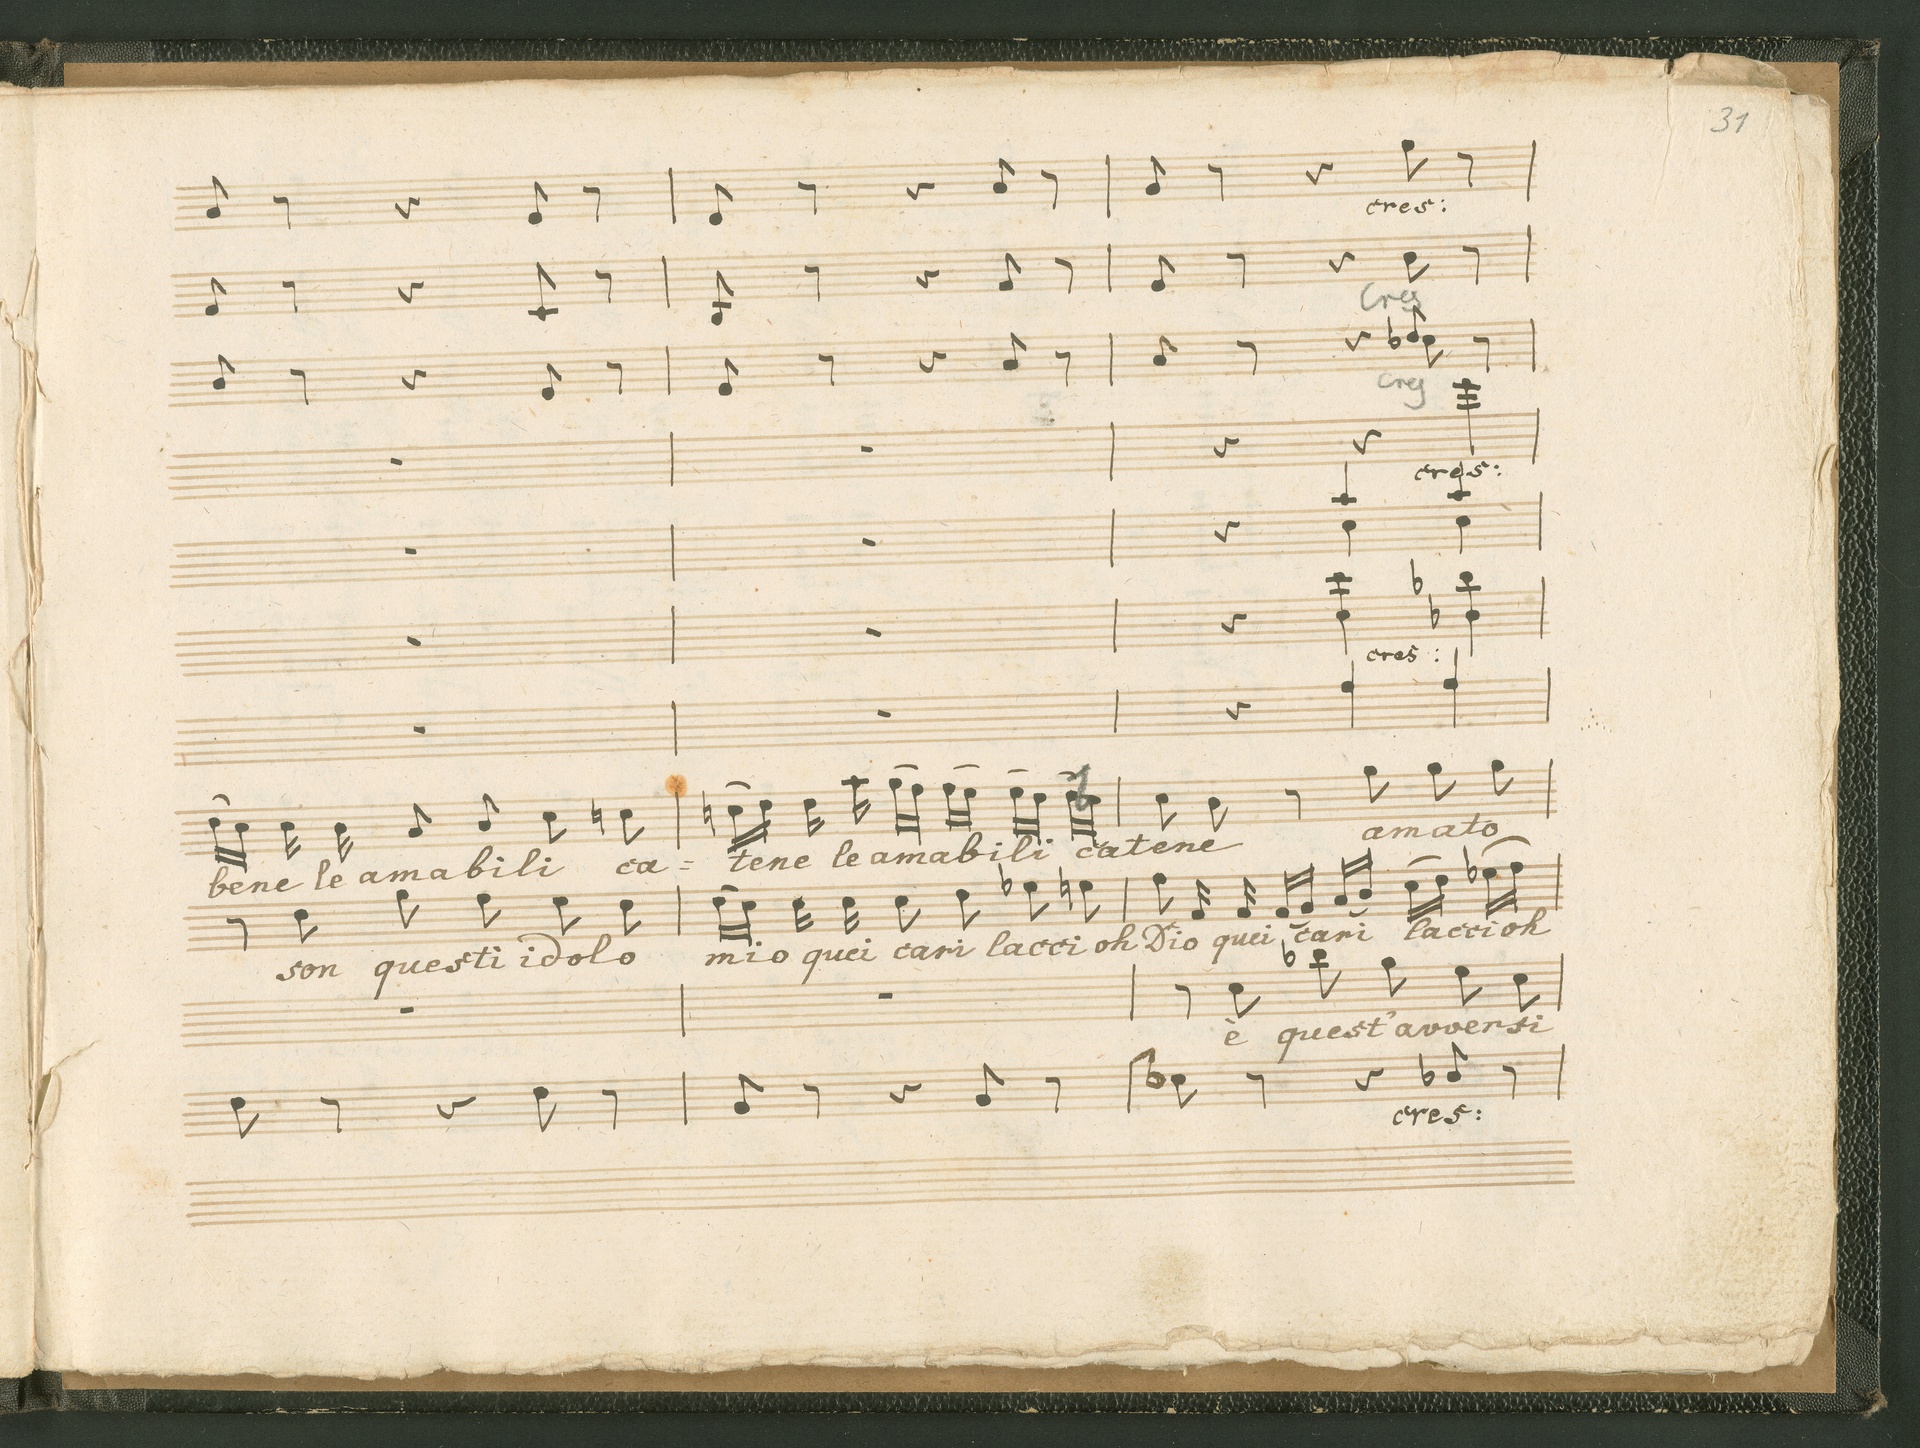 31
cres:
Cres
cres
cres:
cres:
bene le amabili ca = tene le amabili catene amato
son questi idolo mio quei cari lacci oh Dio quei cari lacci oh
è quest'avversi
cres: